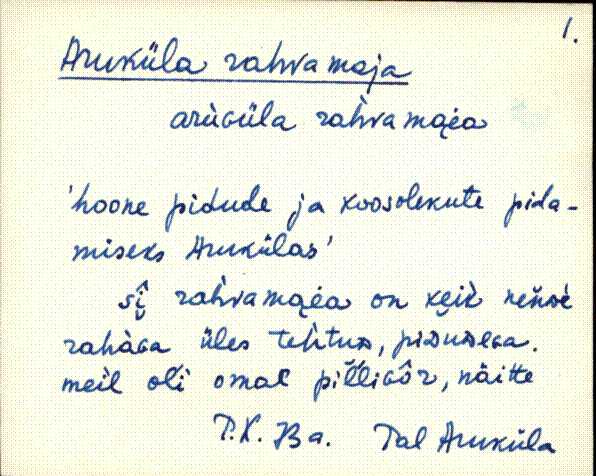 1.
Aruküla rahvamaja
arùɢüla rahvamaea
'hoone pidude ja koosolekute pida-
miseks Arukülas'
sî rahvamaea on keik
rahàɢa üles tehtuᴅ, piᴅuᴅeɢa.
meil oli omal pilliɢôr, näitte
P.K. Ba. Pal Aruküla